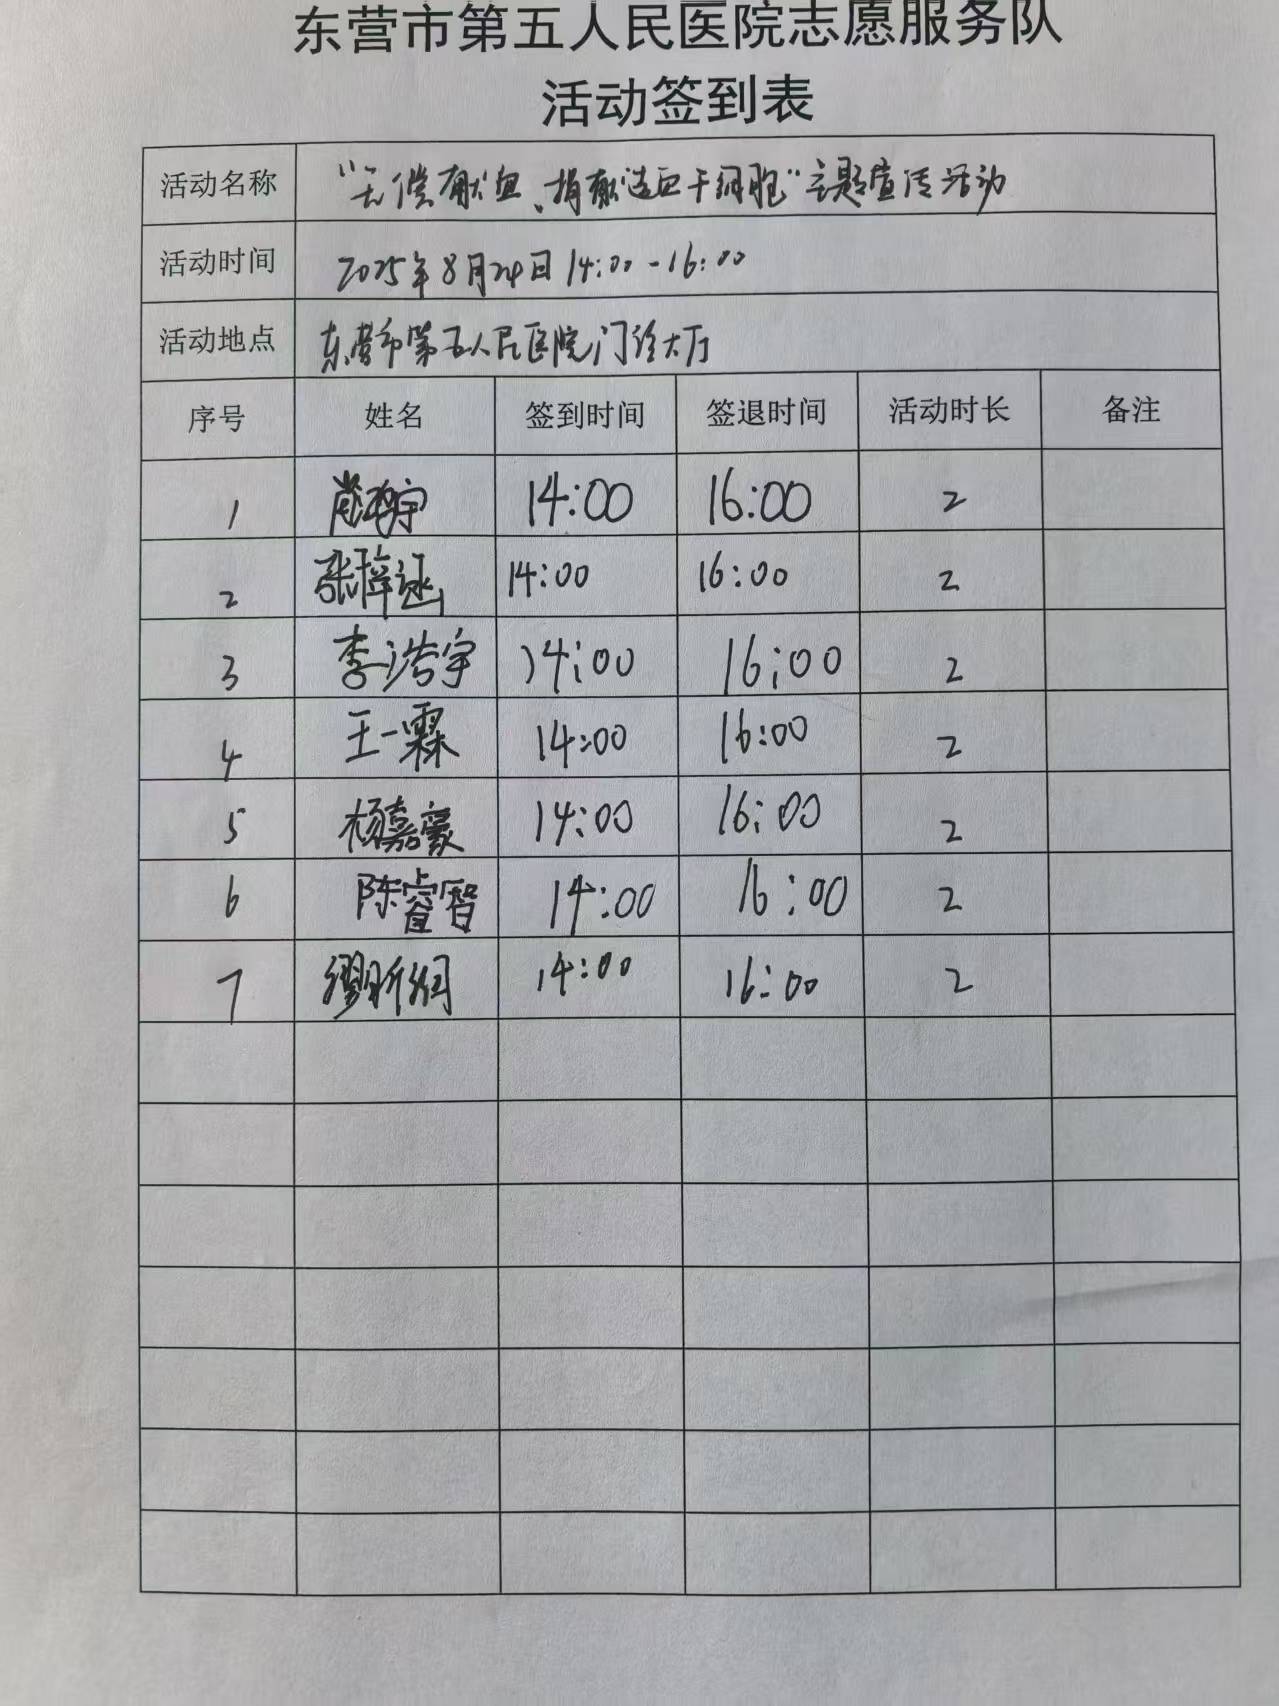 东营市第五人民医院志愿服务队
活动签到表
活动名称 "无偿献血、捐献造血干细胞"主题宣传活动
活动时间 2025年8月24日 14:00-16:00
活动地点 东营市第五人民医院门诊大厅
序号 姓名 签到时间 签退时间 活动时长 备注
1 14:00 16:00 2
2 张梓涵 14:00 16:00 2
3 李浩宇 14:00 16:00 2
4 王一霖 14:00 16:00 2
5 杨嘉豪 14:00 16:00 2
6 陈睿智 14:00 16:00 2
7 14:00 16:00 2